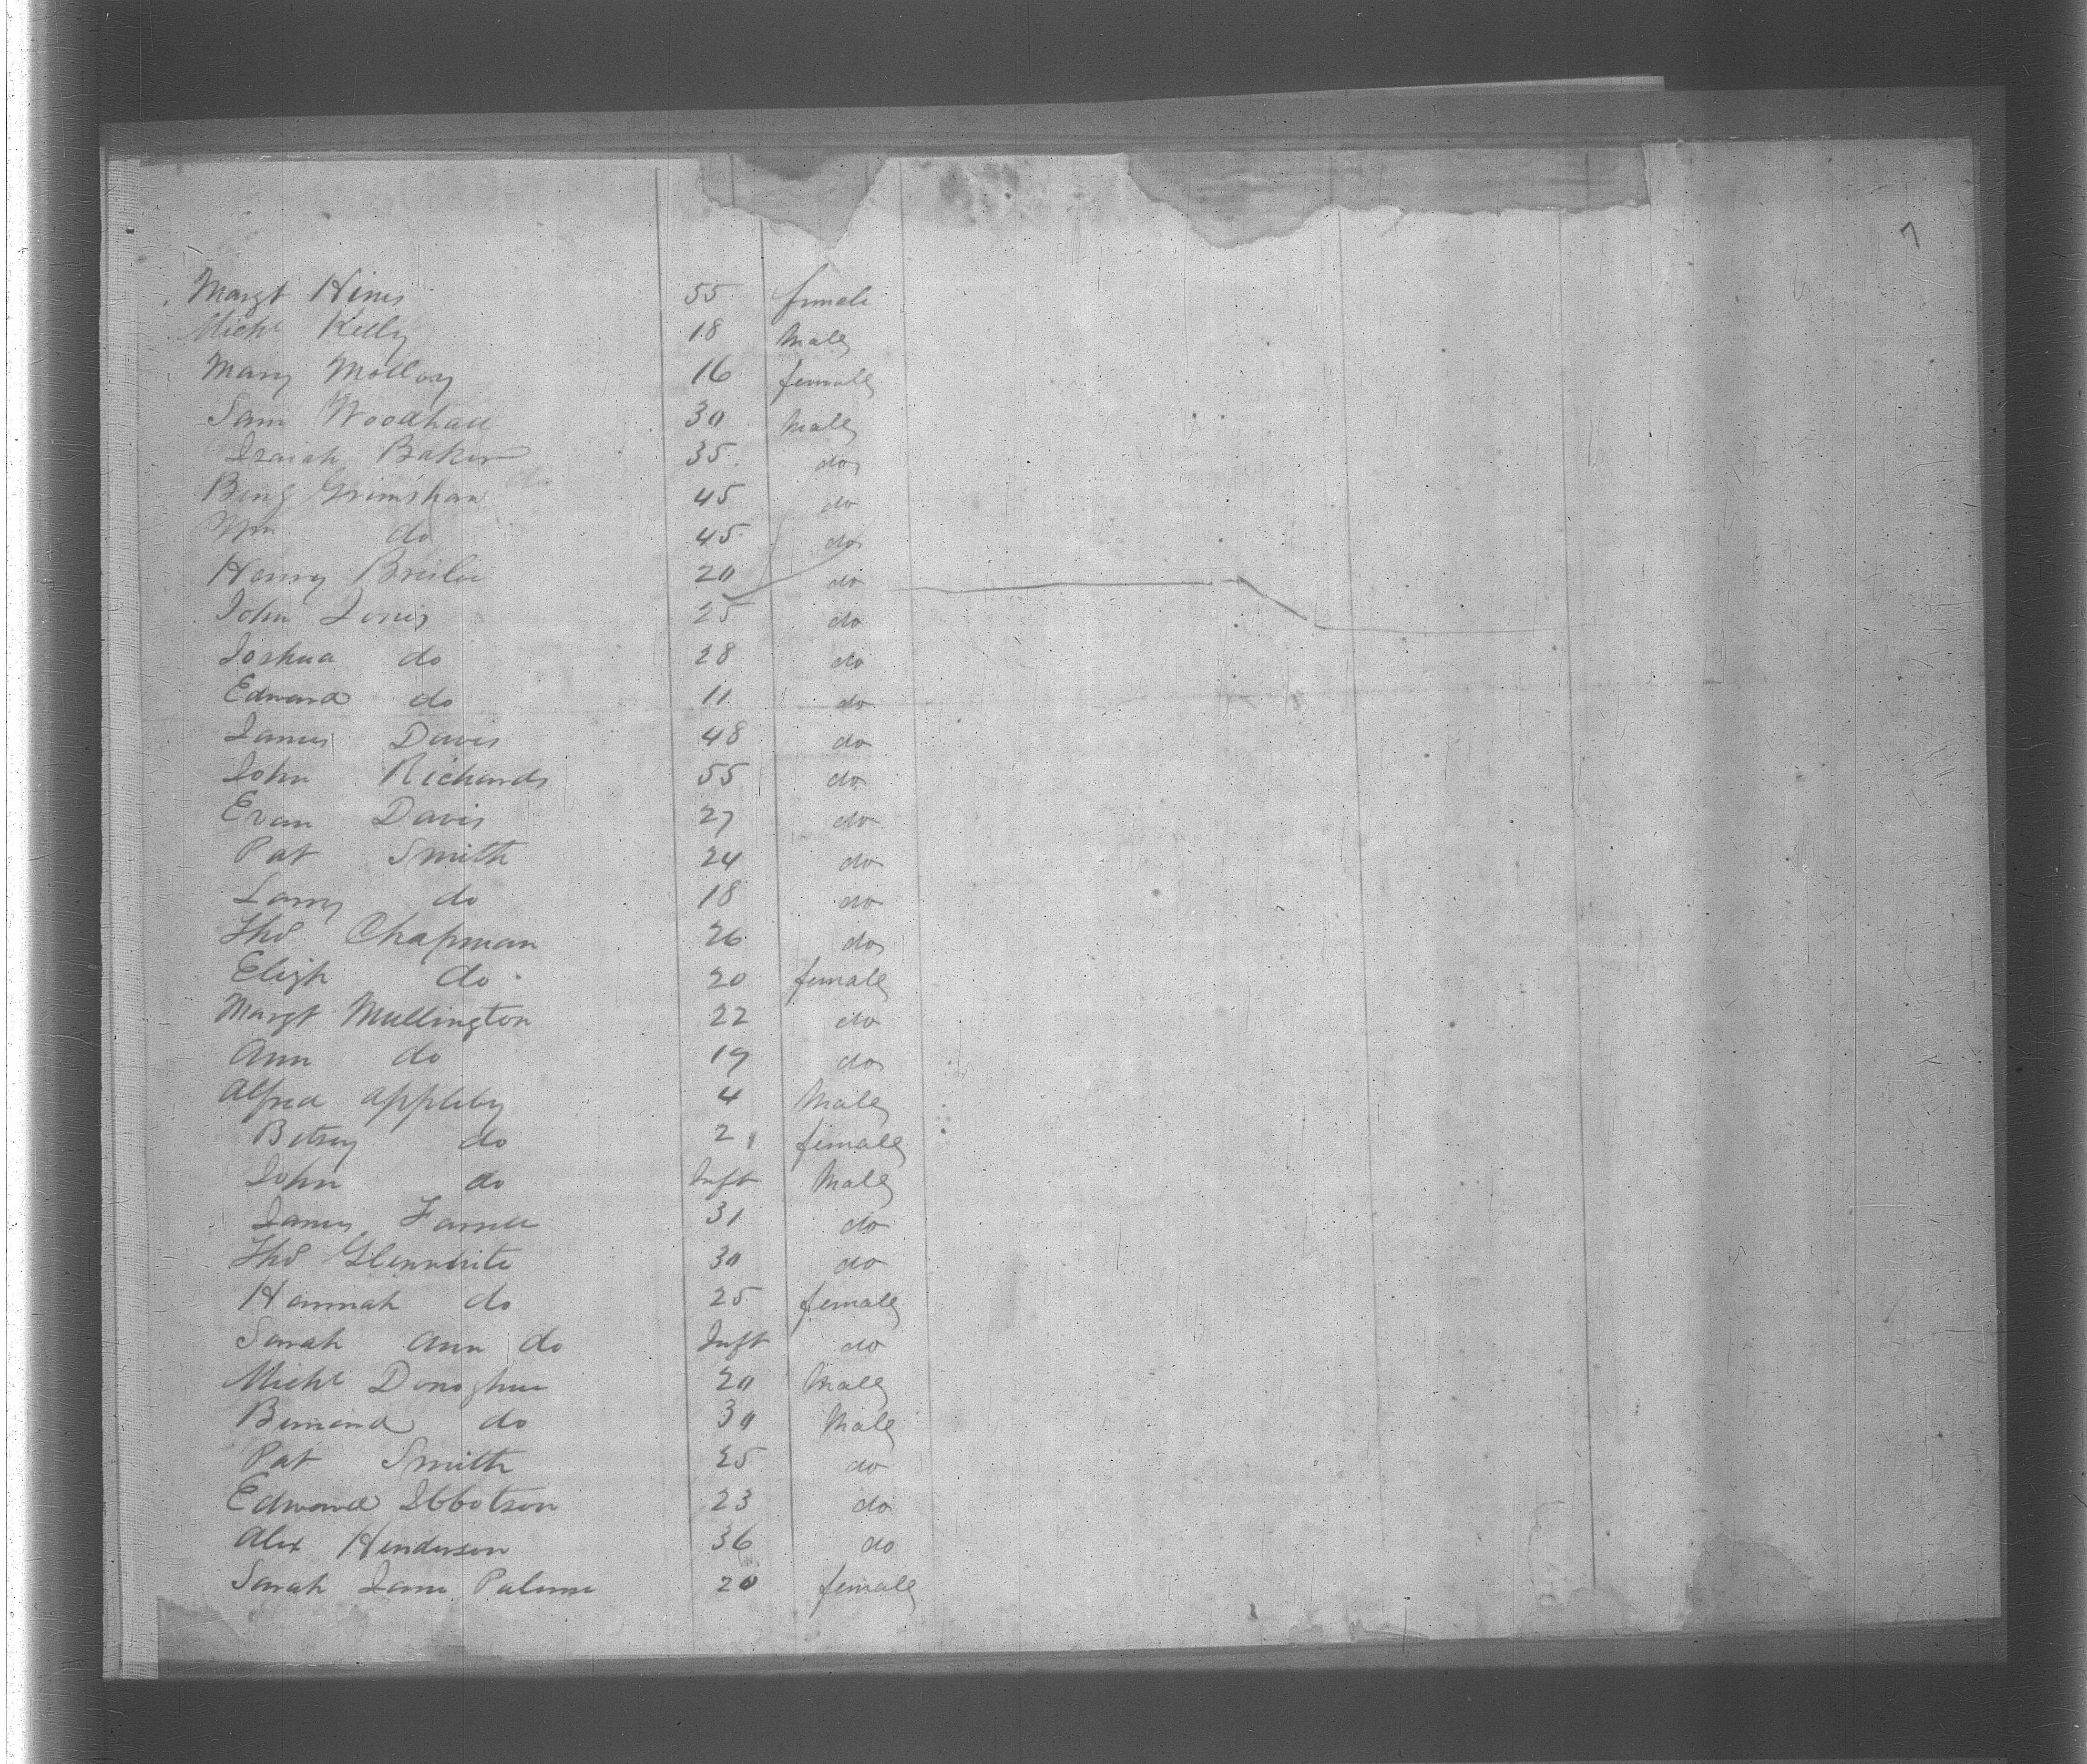 7
Margt Hines 55 female
Michl Kelly 18 Male
Mary Molloy 16 female
Sam Woodhall 30 Male
Isaiah Baker 35 do
Benj Grimshaw 45 do
Wm do 45 do
Henry 20 do
John Jones 25 do
Joshua do 28 do
Edward do 11 do
James Davis 48 do
John Richards 55 do
Evan Davis 27 do
Pat Smith 24 do
Larry do 18 do
Thos Chapman 26 do
Elizh do 20 female
Margt Mullington 22 do
Ann do 19 do
Alfred Appleby 4 Male
Betsey do 2 female
John do Inft Male
James Farrell 31 do
Thos 30 do
Hannah do 25 female
Sarah Ann do Inft do
Michl Donoghue 20 Male
Bernard do 30 Male
Pat Smith 25 do
Edward Ibbotson 23 do
Alex Henderson 36 do
Sarah Jane Palmer 20 female